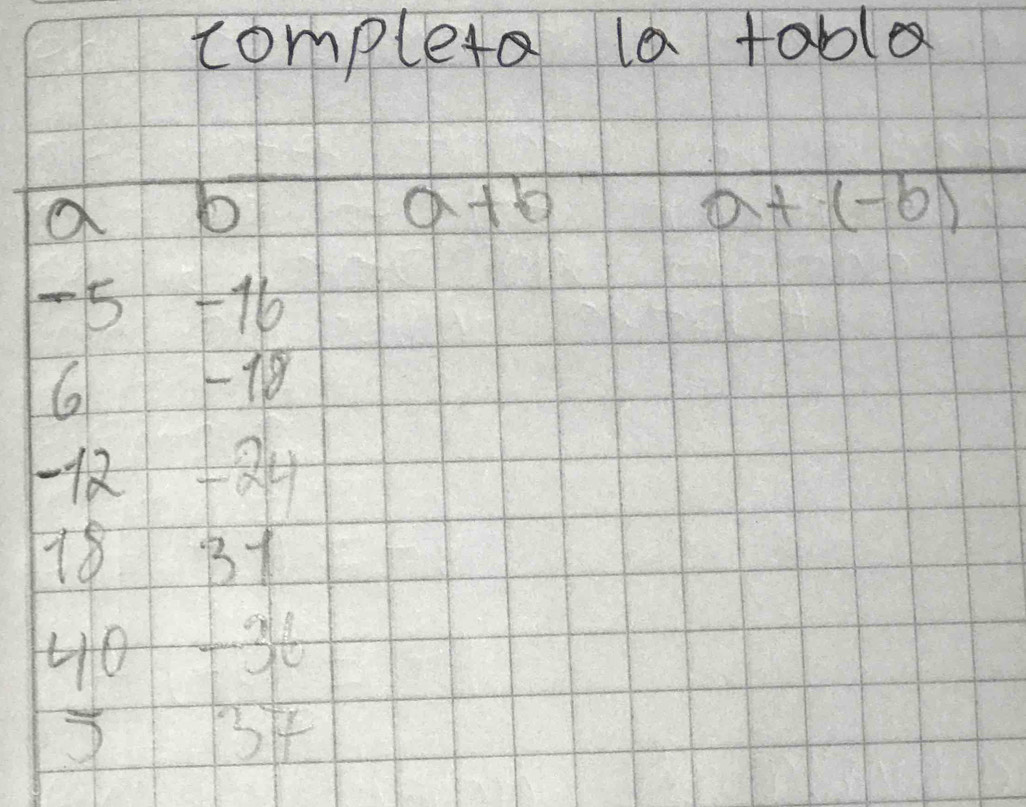 completa la tabla
a b a+b a+(-b)
-5 -16
6 -18
-12 -24
18 31
40 -36
5 37